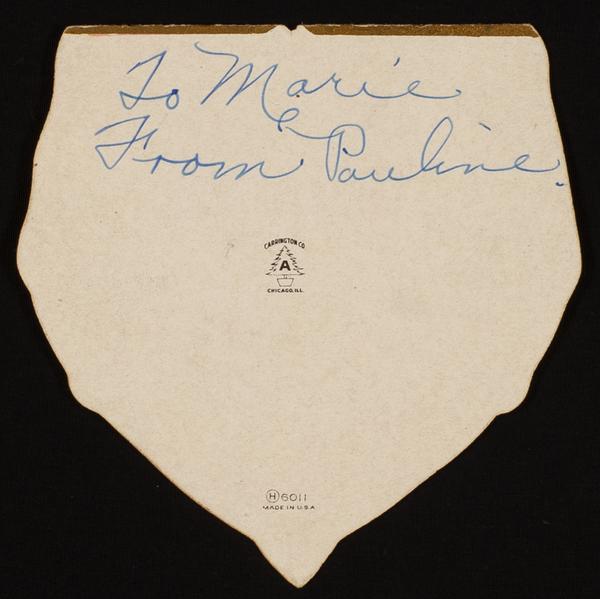 To Marie
From Pauline.
CARRINGTON CO.
A
CHICAGO, ILL.
Ⓗ6011
MADE IN U.S.A